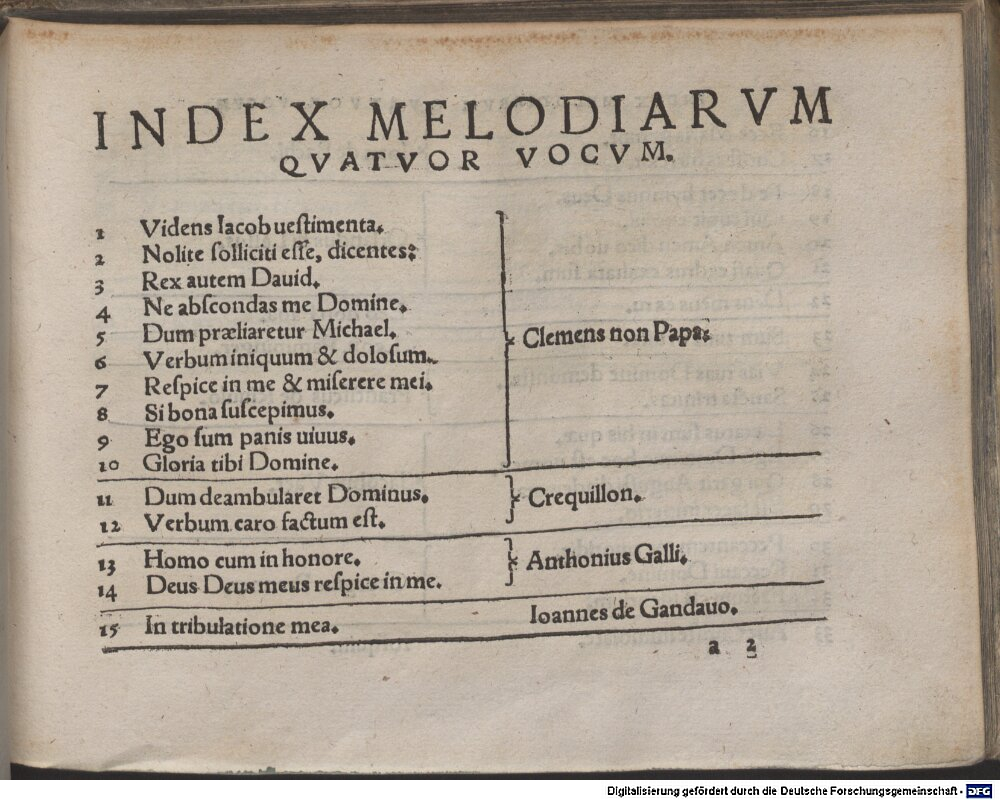 INDEX MELODIARVM
QVATVOR VOCVM.
1 Videns Iacob ueſtimenta.
2 Nolite ſolliciti eſſe, dicentes:
3 Rex autem Dauid.
4 Ne abſcondas me Domine.
5 Dum præliaretur Michael.
6 Verbum iniquum & doloſum.
7 Reſpice in me & miſerere mei.
8 Si bona ſuſcepimus.
9 Ego ſum panis uiuus.
10 Gloria tibi Domine.
Clemens non Papa.
11 Dum deambularet Dominus.
12 Verbum caro factum eſt.
Crequillon.
13 Homo cum in honore.
14 Deus Deus meus reſpice in me.
Anthonius Galli.
15 In tribulatione mea. Ioannes de Gandauo.
a 2
Digitalisierung gefördert durch die Deutsche Forschungsgemeinschaft - DFG